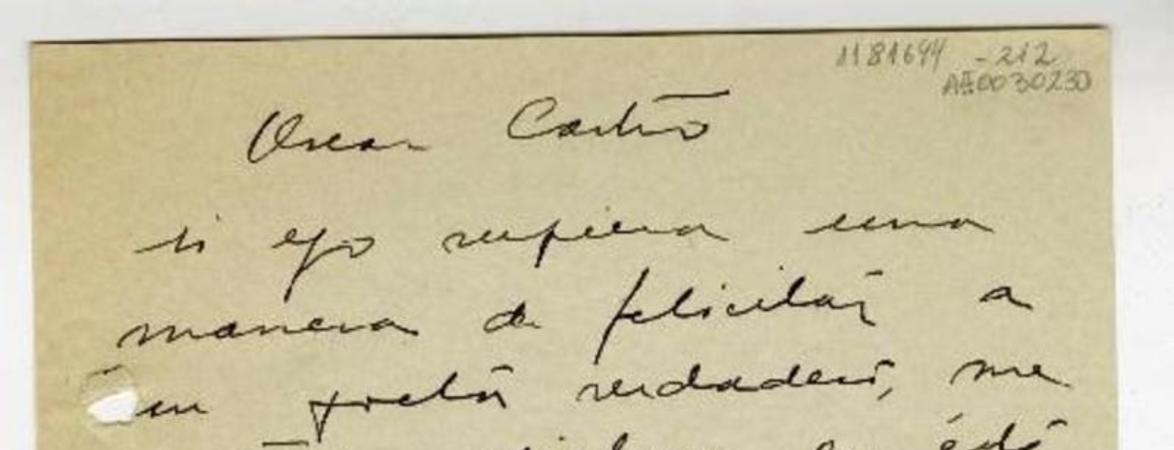 1181694 -212
AE0030230
Oscar Castro
si yo supiera una
manera de felicitar a
un poeta verdadero, me